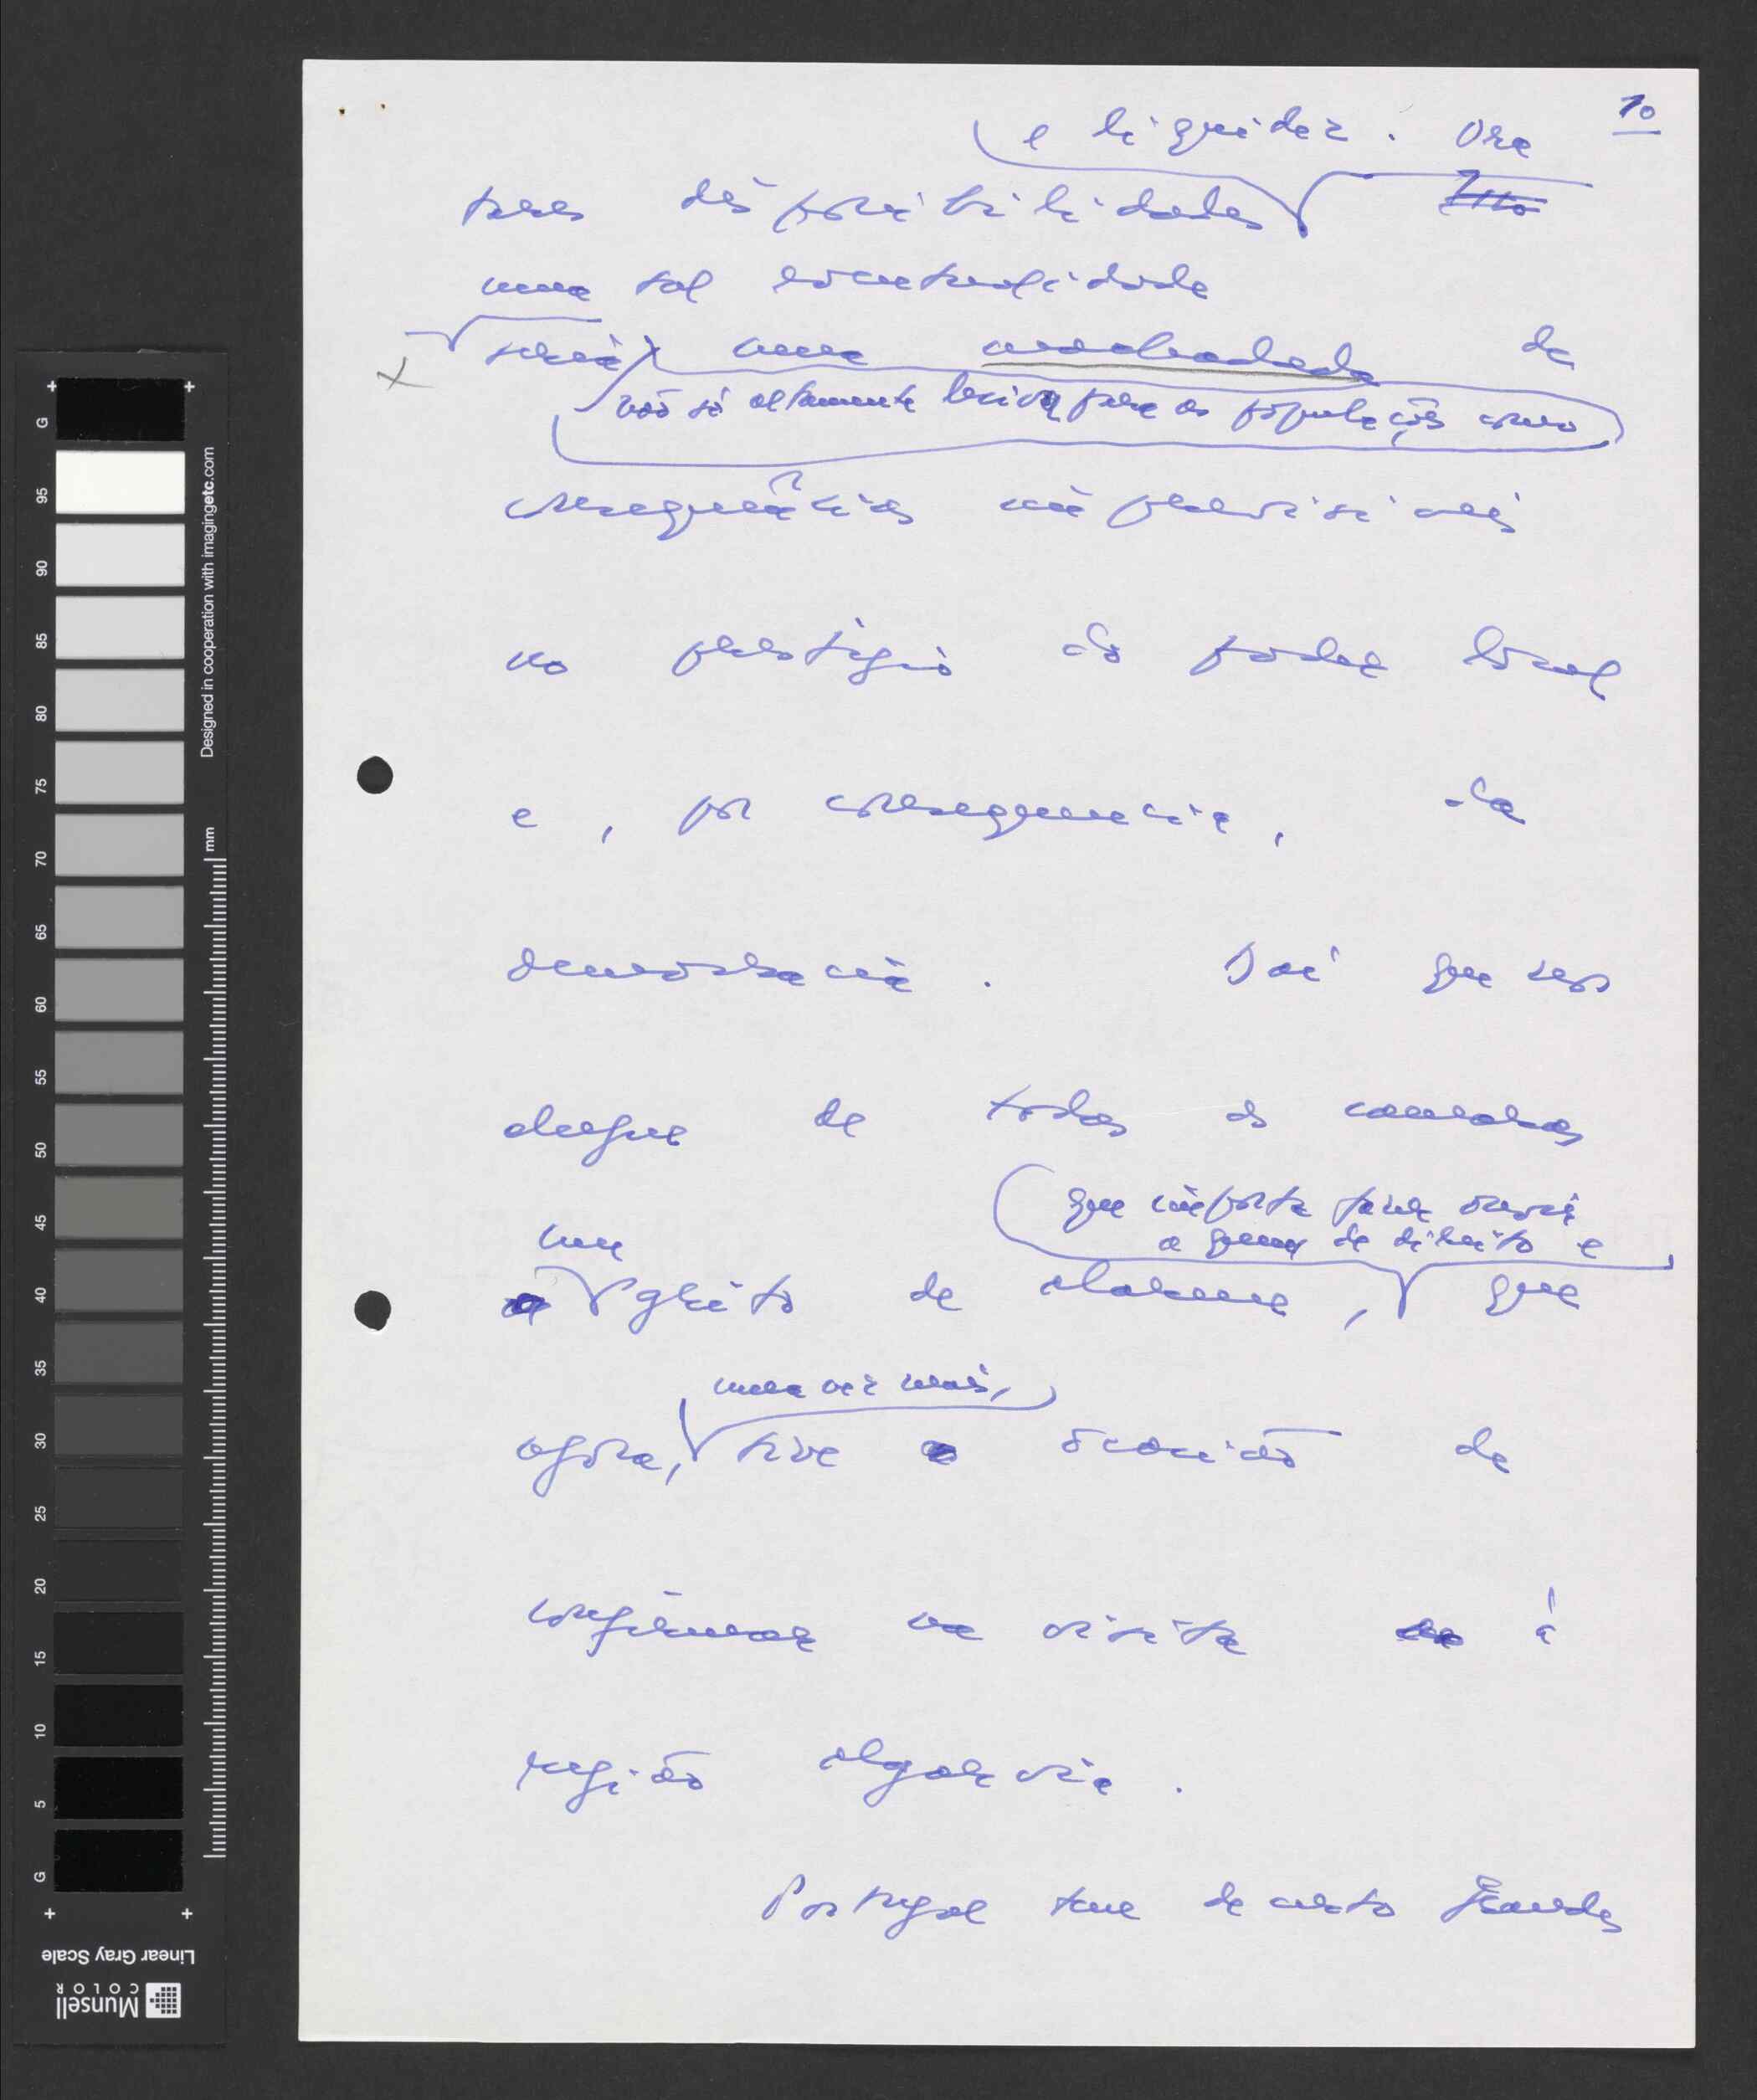 10
e liquidez. Ora
suas disponibilidades Isto
uma tal eventualidade
seria uma machadada de
não só altamente lesiva para as populações como
consequências imprevisíveis
no prestígio do poder local
e, por consequencia, da
democracia. Daí que
chegue de todas as camaras
um
grito de alarme, que
que importa fazer ouvir
a quem de direito e
uma vez mais,
agora, tive ocasião de
confirmar na visita à
região algarvia.
Portugal tem decerto grandes
G
95
90
85
80
75
70
65
60
55
50
45
40
35
30
25
20
15
10
5
G
mm
Designed in cooperation with imagingetc.com
Linear Gray Scale
Munsell
COLOR